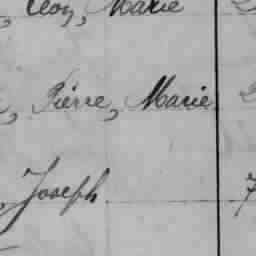 , Léon, Marie
, Pierre, Marie
, Joseph 7